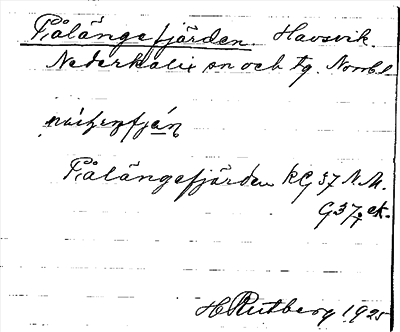 Pålängefjärden. Havsvik.
Nederkalix sn och tg. Norrb. l
Pålängefjärden RG 37 N.M.
G 37 ek.
H Rutberg 1925